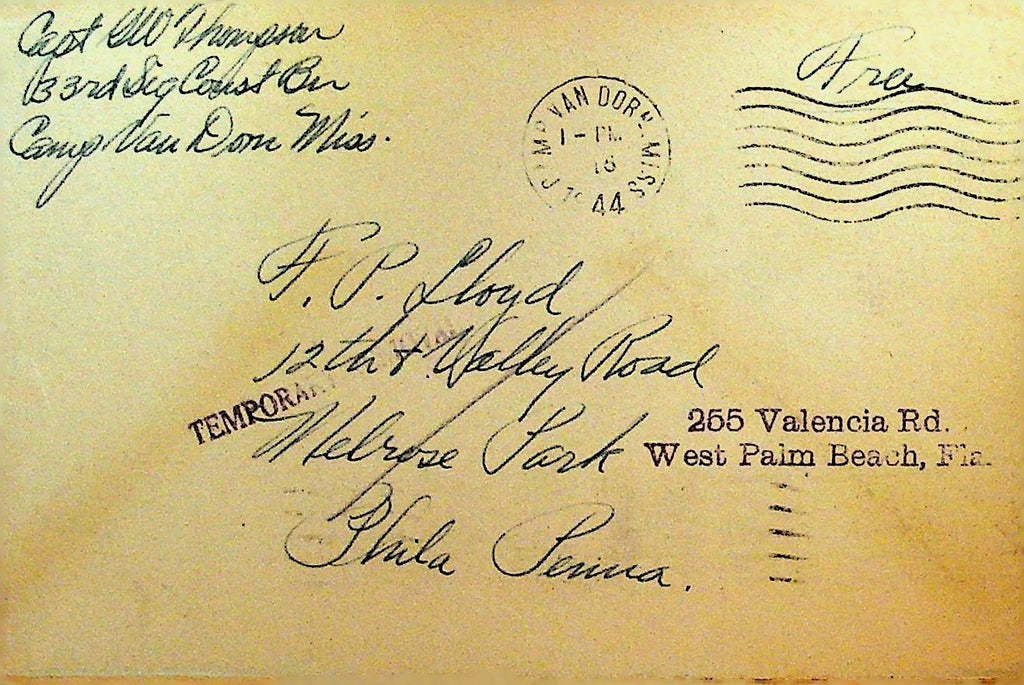 Capt GW Thompson
Free
133rd Sig Const Bn
Camp Van Dorn Miss.
CAMP VAN DORN, MISS
1 - PM
16
44
F. P. Lloyd
12th & Valley Road
TEMPORARY
Melrose Park
255 Valencia Rd.
West Palm Beach, Fla.
Phila Penna.